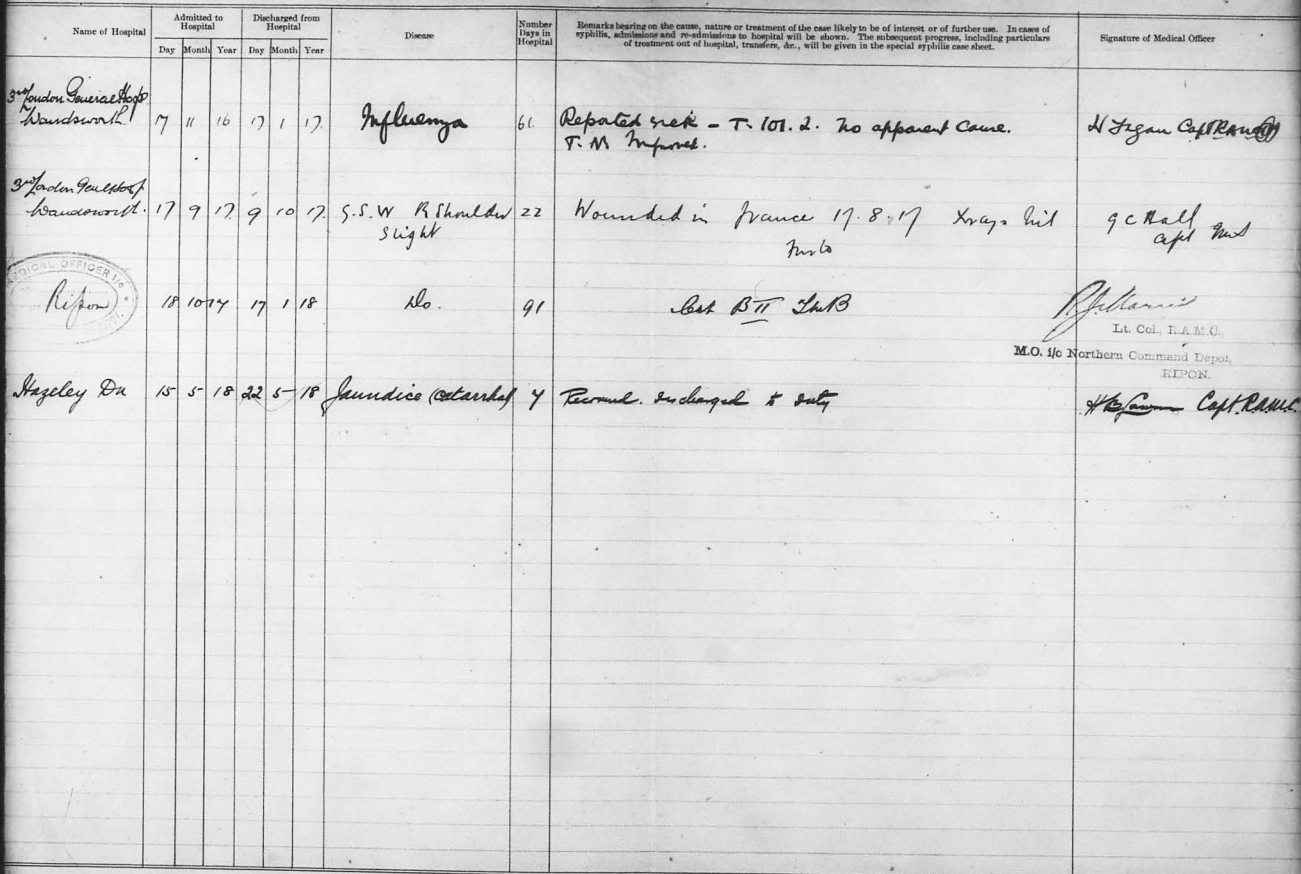 Name of Hospital
Admitted to Hospital
Discharged from Hospital
Disease
Number Days in Hospital
Remarks bearing on the cause, nature or treatment of the case likely to be of interest or of further use. In cases of
syphilis, admissions and re-admissions to hospital will be shown. The subsequent progress, including particulars
of treatment out of hospital, transfers, &c., will be given in the special syphilis case sheet.
Signature of Medical Officer
Day Month Year Day Month Year
3rd London General Hosp
Wandsworth. 17 11 16 17 1 17. Influenza 61. Reported sick - T. 101.2. No apparent cause. Capt
T. N Improved.
3rd London Genl Hosp
Wandsworth. 17 9 17. 9 10 17. G.S.W R Shoulder 22 Wounded in France 17.8.17 Xrays Nil G C Hall
Slight Capt
MEDICAL OFFICER i/c
Ripon 18 10 17 17 1 18 Do. 91 Cat B II
Lt. Col., R.A.M.C.,
M.O. i/c Northern Command Depot,
RIPON.
Hazeley Dn 15 5 18 22 5 18 Jaundice (catarrhal) 7 discharged to duty Capt. RAMC.